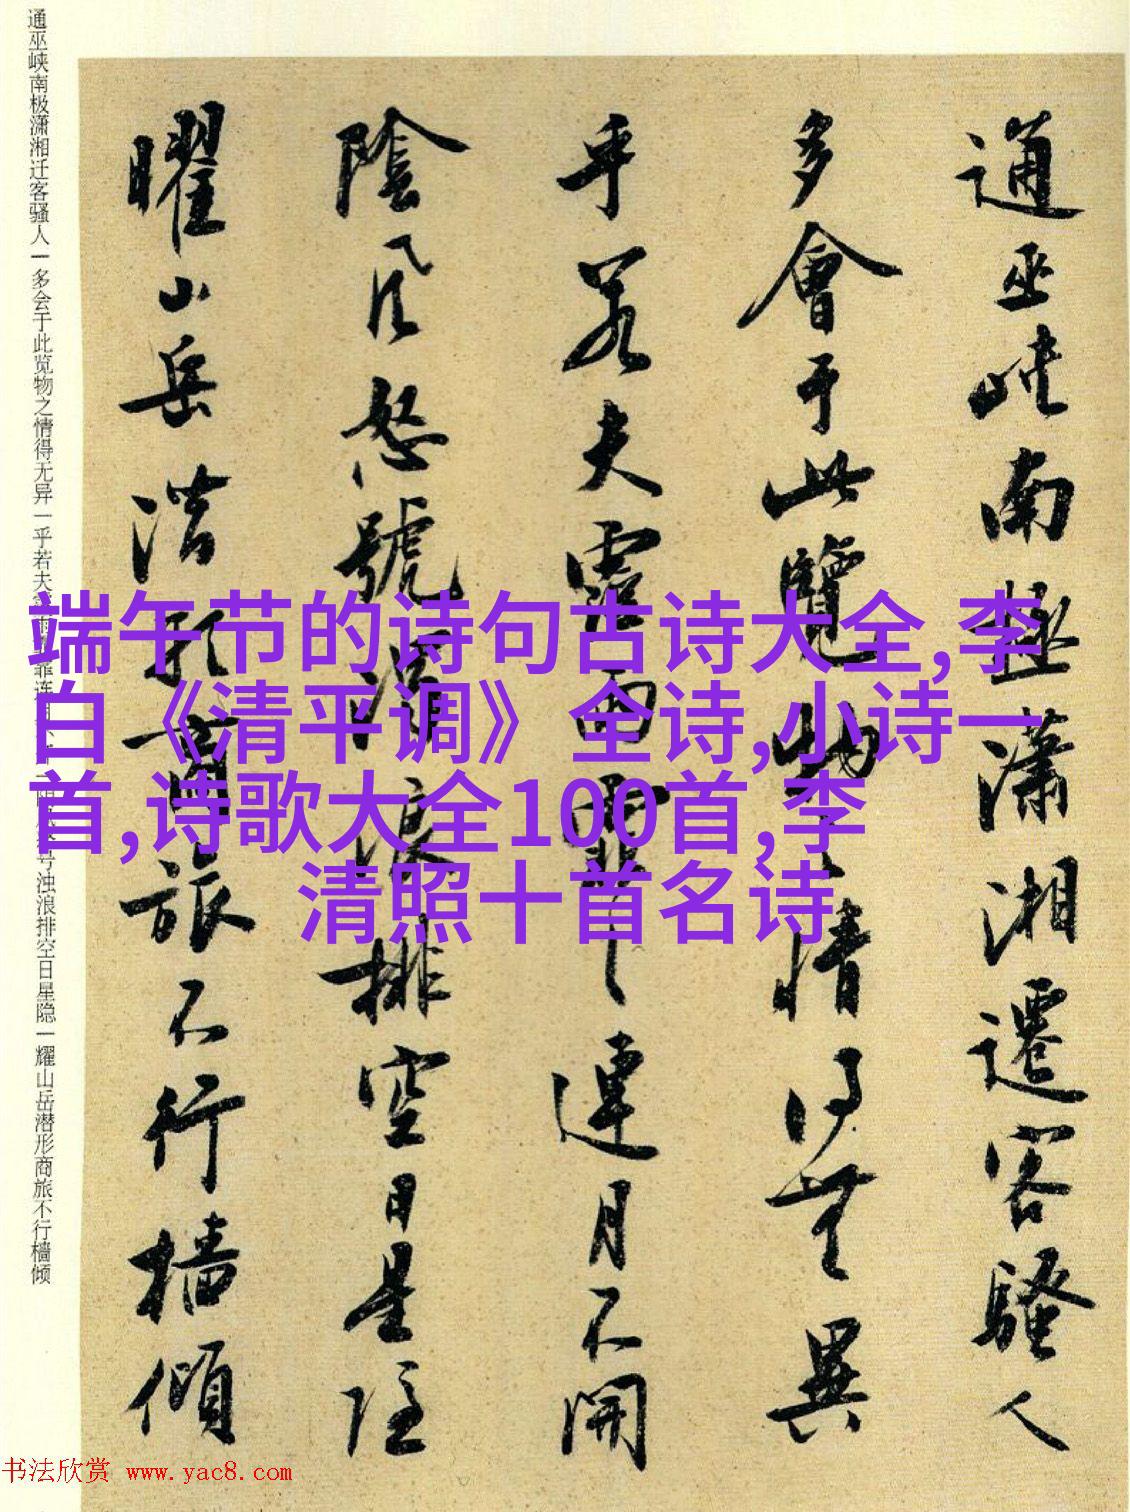 通巫峡南極瀟湘遷客騷人
多會于此覽物之情得無異
乎若夫霪雨霏霏連月不開
陰風怒號濁浪排空日星隱
曜山岳潜形商旅不行檣傾
通巫峡南极潇湘迁客骚人一多会于此览物之情得无异一乎若夫霏连号浊浪排空日星隐一耀山岳潜形商旅不行樯倾
端午节的诗句古诗大全,李
白《清平调》全诗,小诗一
首,诗歌大全100首,李
清照十首名诗
书法欣赏 www.yac8.com